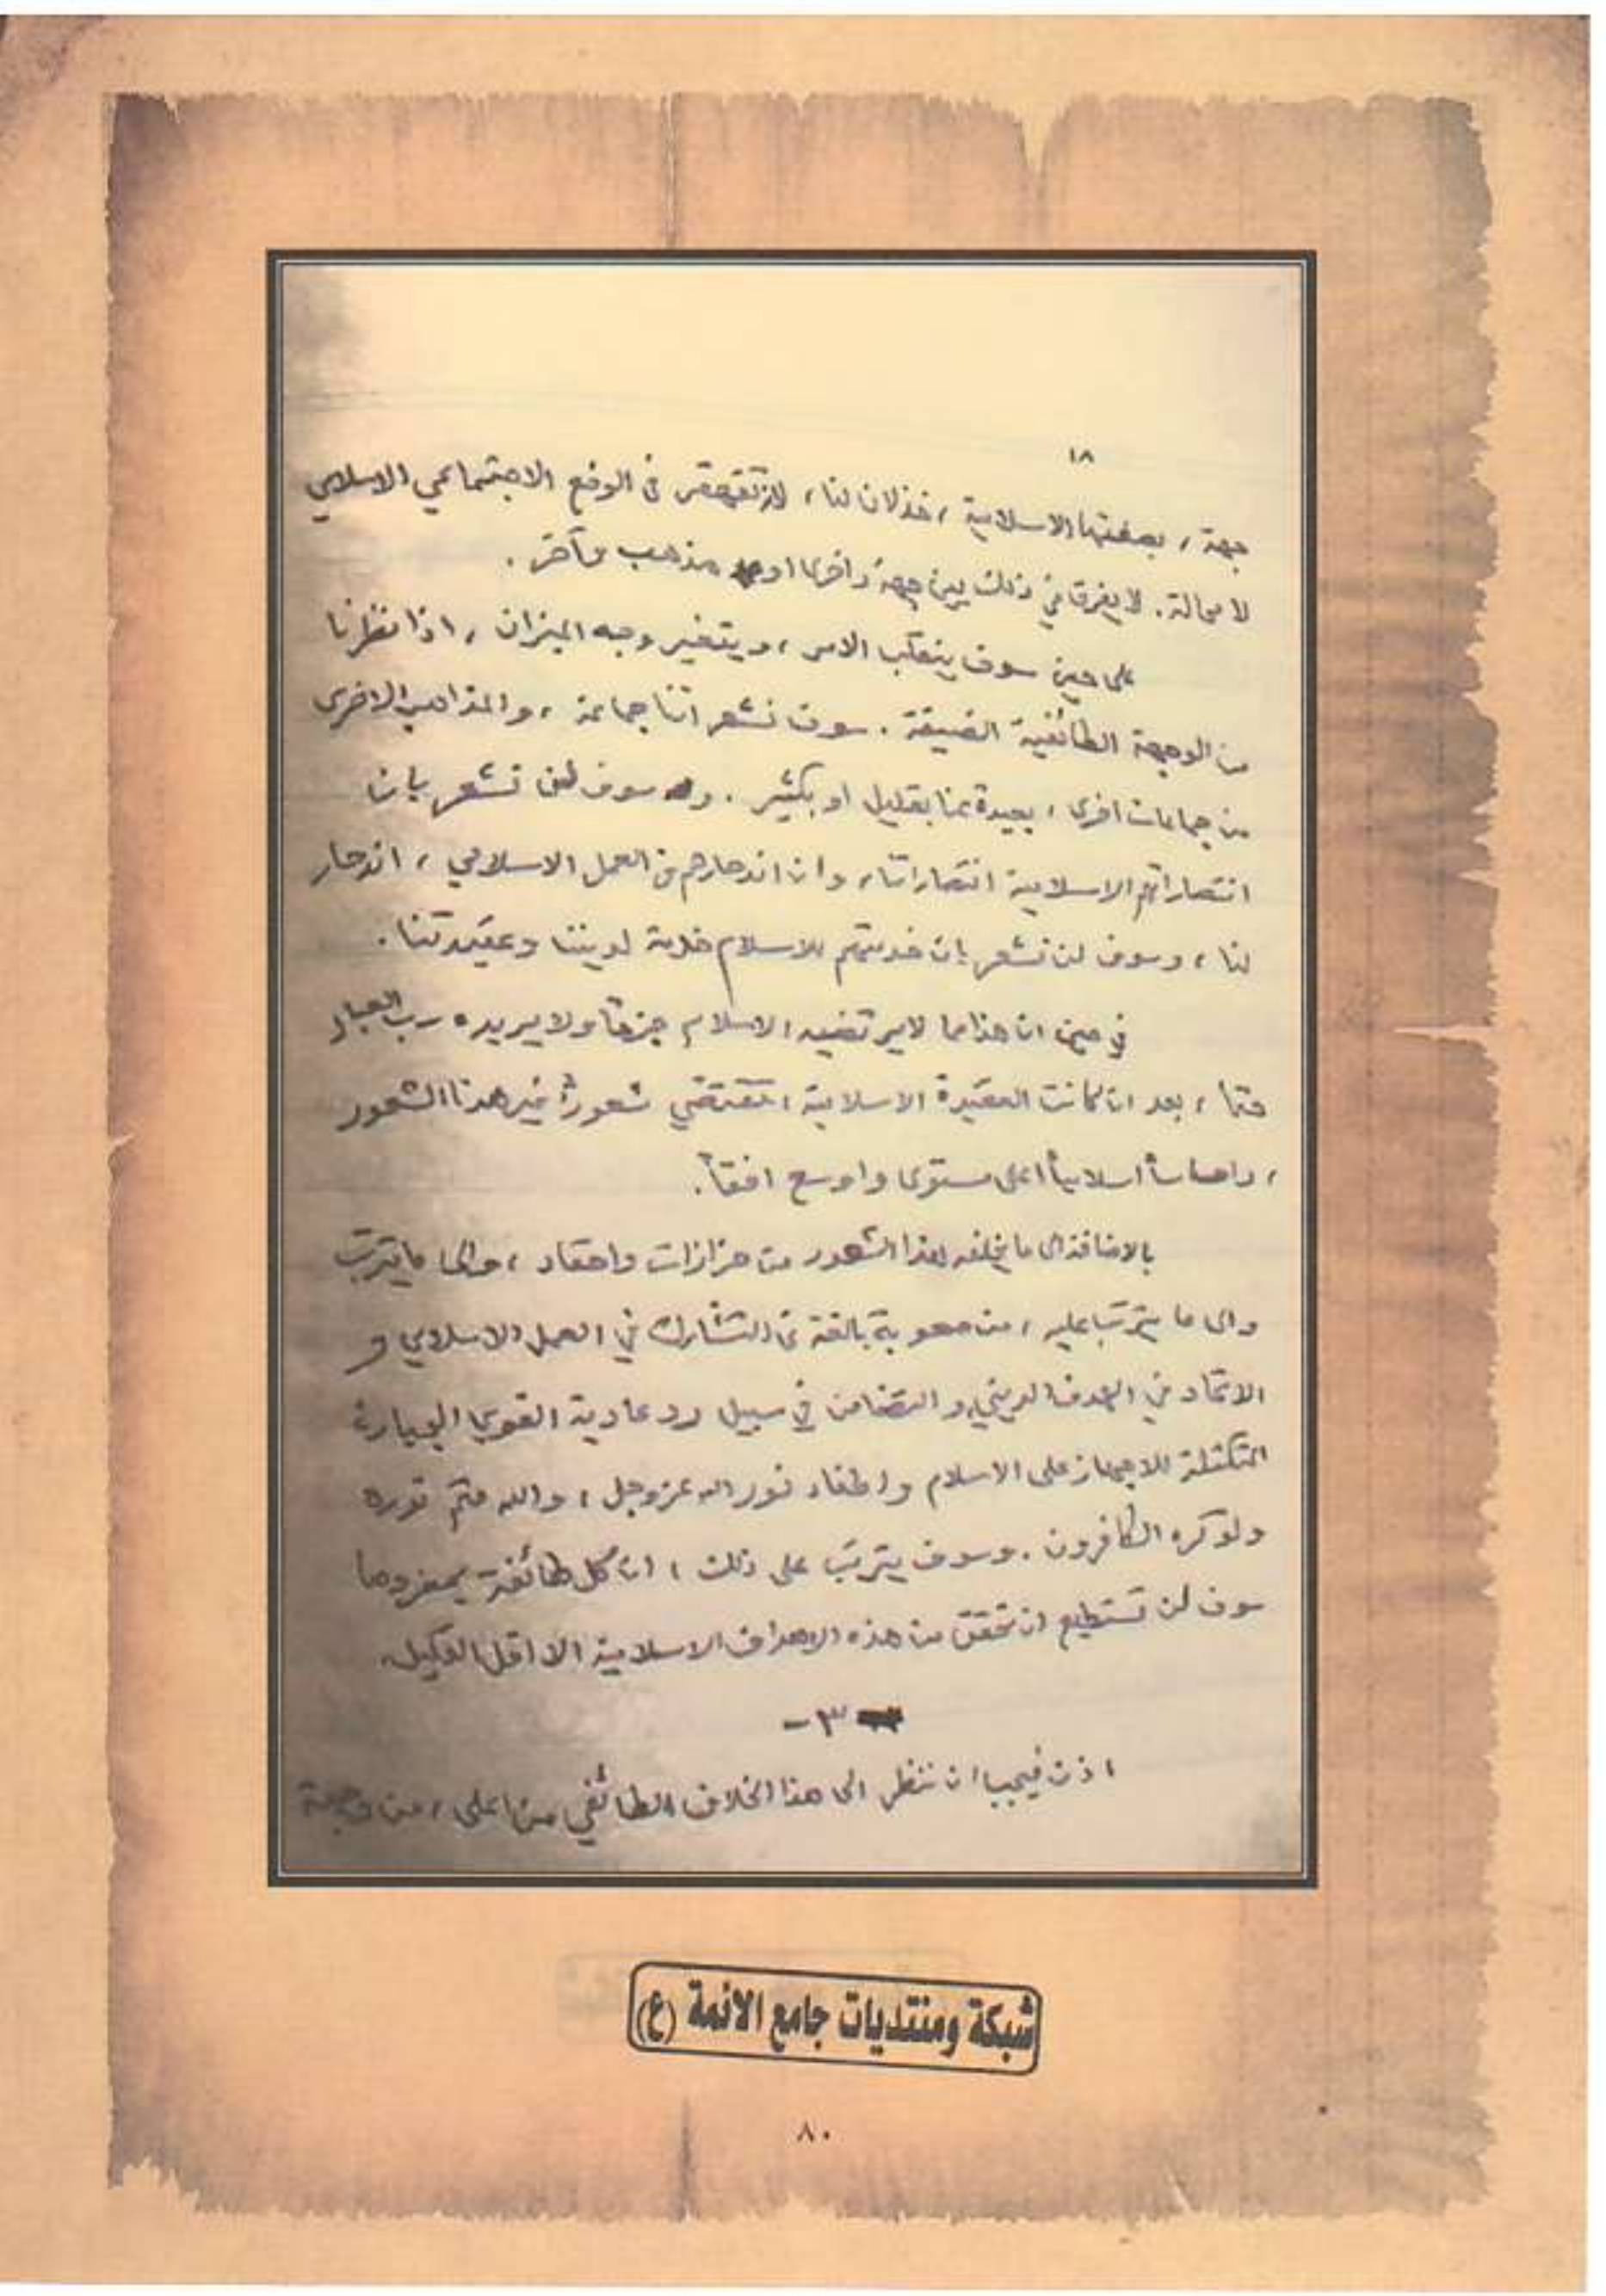 ١٨
جهة ، بصفتها الاسلامية ، خذلان لنا ، لانه تقهقر في الوضع الاجتماعي الاسلامي
لا محالة . لا يفرق في ذلك بين جهة واخرى او مذهب وآخر .
على حين سوف ينقلب الامر ، ويتغير وجه الميزان ، اذا نظرنا
من الوجهة الطائفية الضيقة . سوف نشعر اننا جماعة ، والمذاهب الاخرى
من جماعات اخرى ، بعيدة عنا بقليل او بكثير . وسوف لن نشعر بان
انتصاراتهم الاسلامية انتصاراتنا ، وان اندحارهم في العمل الاسلامي ، اندحار
لنا ، وسوف لن نشعر بان خدمتهم للاسلام خدمة لديننا وعقيدتنا .
في حين ان هذا مما لا يرتضيه الاسلام جزماً ولا يريده رب العباد
حتما ، بعد ان كانت العقيدة الاسلامية ، تقتضي شعوراً غير هذا الشعور
، واحساساً اسلامياً اعلى مستوى واوسع افقاً .
بالاضافة الى ما يخلفه هذا الشعور من حزازات واحقاد ، والى ما يترتب
والى ما يترتب عليه ، من صعوبة بالغة في التشارك في العمل الاسلامي و
الاتحاد في الهدف الديني و التضامن في سبيل رد عادية القوى الجبارة
المتكتلة للاجهاز على الاسلام واطفاء نور الله عز وجل ، والله متم نوره
ولو كره الكافرون . وسوف يترتب على ذلك ، ان كل طائفة بمفردها
سوف لن تستطيع ان تحقق من هذه الاهداف الاسلامية الا اقل القليل .
- ٣ -
اذن فيجب ان ننظر الى هذا الخلاف الطائفي من اعلى ، من وجهة
شبكة ومنتديات جامع الائمة (ع)
٨٠